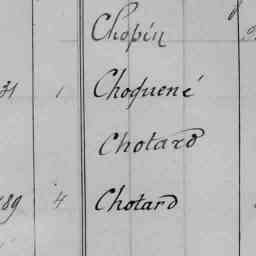 Chopin
31 1 Choquené
Chotard
189 4 Chotard